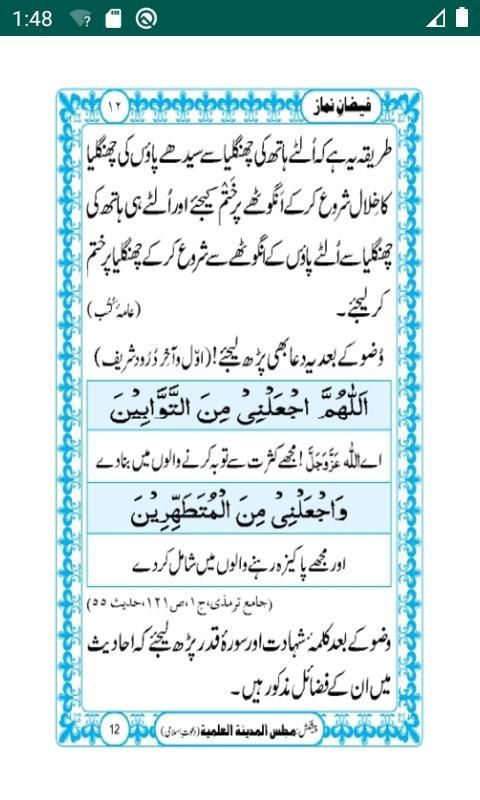 1:48
فیضانِ نماز
۱۲
طریقہ یہ ہے کہ اُلٹے ہاتھ کی چھنگلیا سے سیدھے پاؤں کی چھنگلیا
کا خلال شروع کرکے اَنگوٹھے پر خَتْم کیجئے اور اُلٹے ہی ہاتھ کی
چھنگلیا سے اُلٹے پاؤں کے انگوٹھے سے شروع کرکے چھنگلیا پر ختم
کر لیجئے۔ (عامۂ کُتُب)
وُضو کے بعد یہ دعا بھی پڑھ لیجئے! (اوّل و آخِر دُرُود شریف)
اَللّٰهُمَّ اجْعَلْنِیْ مِنَ التَّوَّابِیْنَ
اے اللّٰه عَزَّوَجَلَّ! مجھے کثرت سے توبہ کرنے والوں میں بنادے
وَاجْعَلْنِیْ مِنَ الْمُتَطَهِّرِیْنَ
اور مجھے پاکیزہ رہنے والوں میں شامل کردے
(جامع ترمذی، ج۱، ص۱۲۱، حدیث ۵۵)
وضو کے بعد کلمۂ شہادت اور سورۂ قدر پڑھ لیجئے کہ احادیث
میں ان کے فضائل مذکور ہیں۔
پیشکش: مجلس المدینة العلمیة (دعوتِ اسلامی)
12